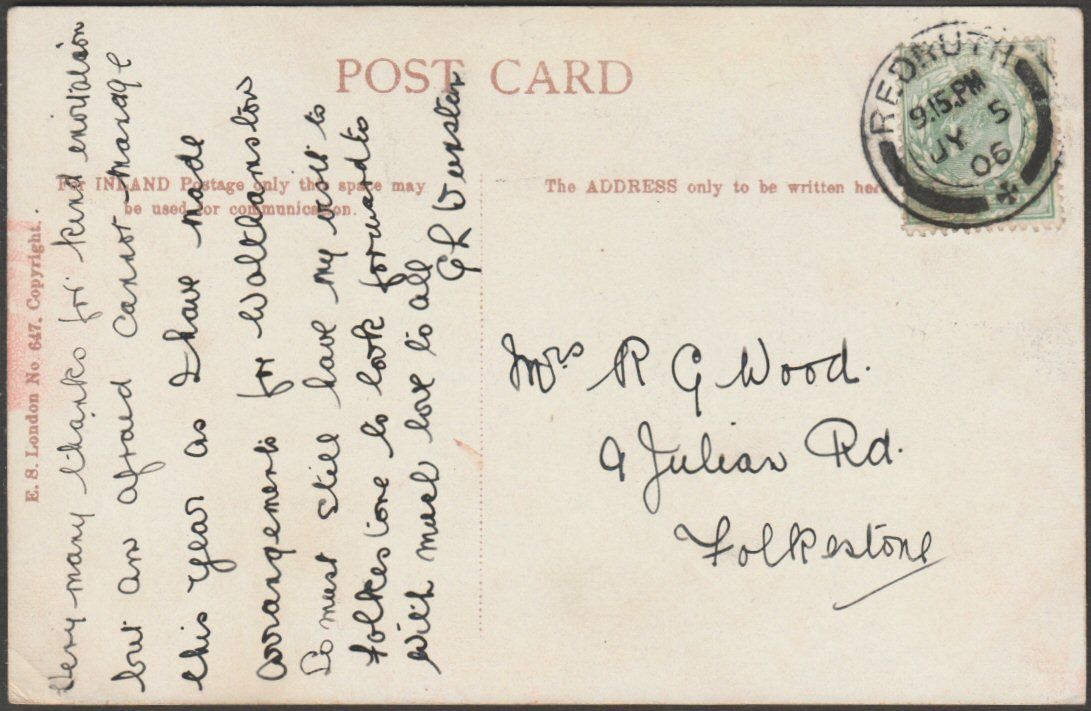 POST CARD
For INLAND Postage only this space may
be used for communication.
The ADDRESS only to be written here
E. S. London No. 647. Copyright.
REDRUTH
9.15.PM
JY 5
06
Very many thanks for kind invitation
but am afraid cannot manage
this year as I have made
arrangements for Walthamstow
So must still have my visit to
Folkestone to look forward to
With much love to all
G L
Mrs R G Wood.
9 Julian Rd.
Folkestone